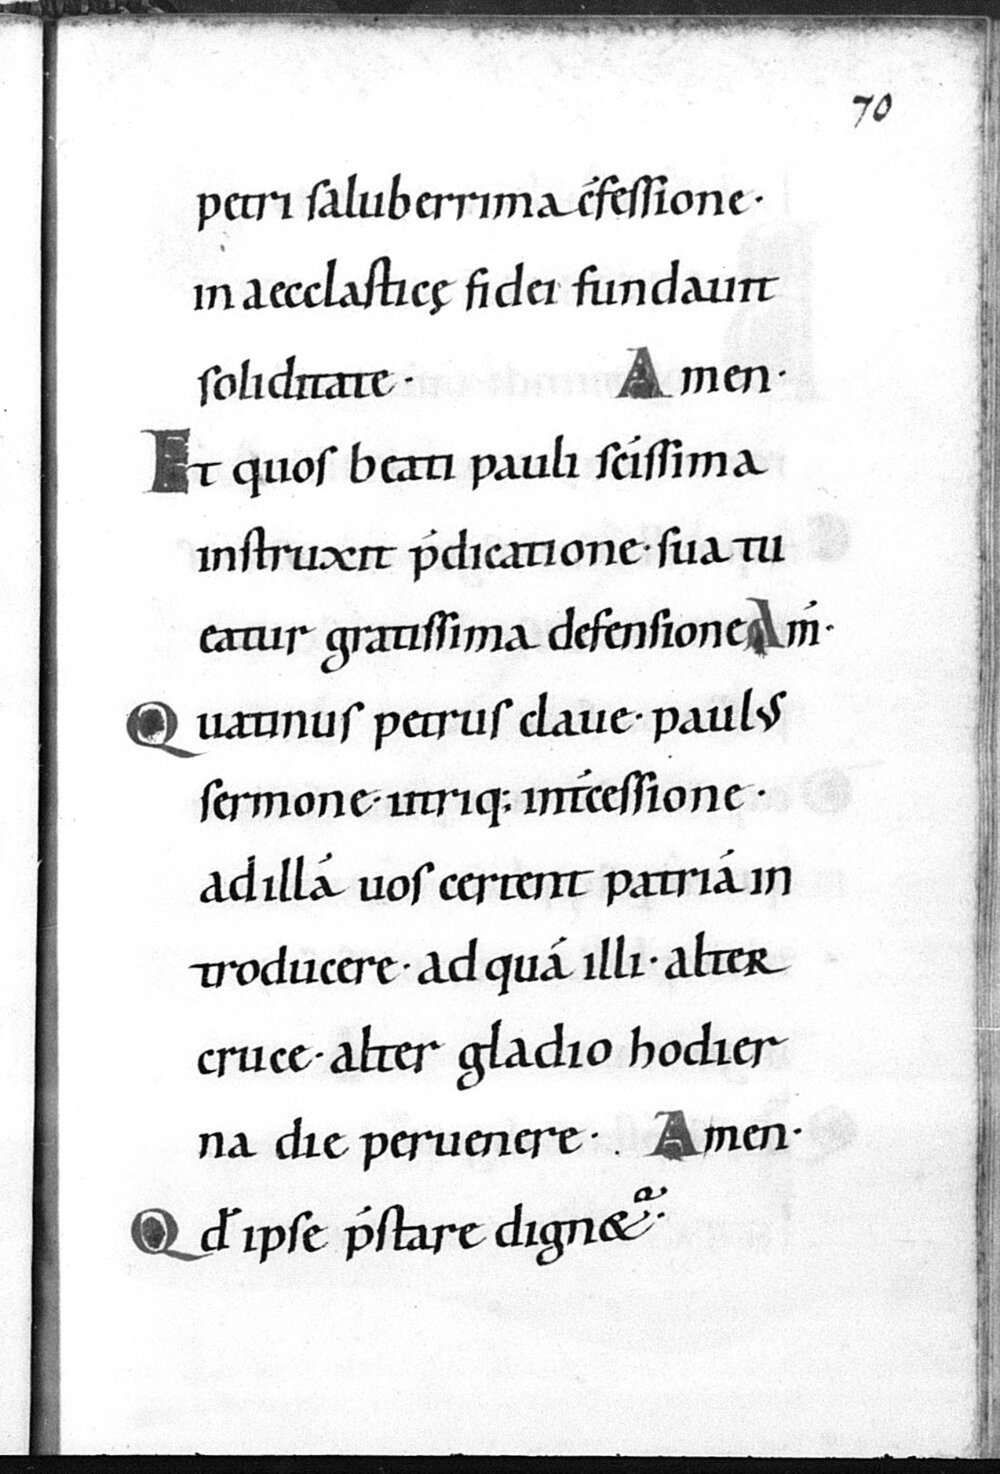 70
petri saluberrima c̄fessione·
in aecclasticę fidei fundauit
soliditate· Amen·
Et quos beati pauli sc̄issima
instruxit p̄dicatione· sua tu
eatur gratissima defensione Am̄·
Quatinus petrus claue· paulus
sermone· utriq; int̄cessione·
ad illā uos certent patriā in
troducere· ad quā illi· alter
cruce· alter gladio hodier
na die peruenere· Amen·
Qd̄ ipse p̄stare dign&a·